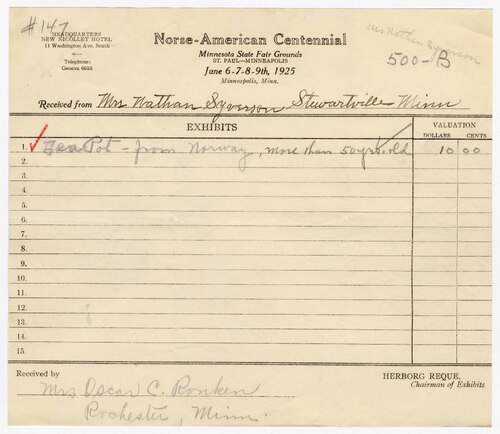 #147
HEADQUARTERS
NEW NICOLLET HOTEL
11 Washington Ave. South
Telephone:
Geneva 6935
Norse-American Centennial
Minnesota State Fair Grounds
ST. PAUL—MINNEAPOLIS
June 6-7-8-9th, 1925
Minneapolis, Minn.
Mrs Nathan Syverson
500-B
Received from Mrs Nathan Syverson Stewartville Minn
EXHIBITS
VALUATION
DOLLARS CENTS
1. Tea Pot - from Norway, more than 50 yrs. old 10 00
2.
3.
4.
5.
6.
7.
8.
9.
10.
11.
12.
13.
14.
15.
Received by
Mrs Oscar C. Ronken
Rochester, Minn.
HERBORG REQUE.
Chairman of Exhibits